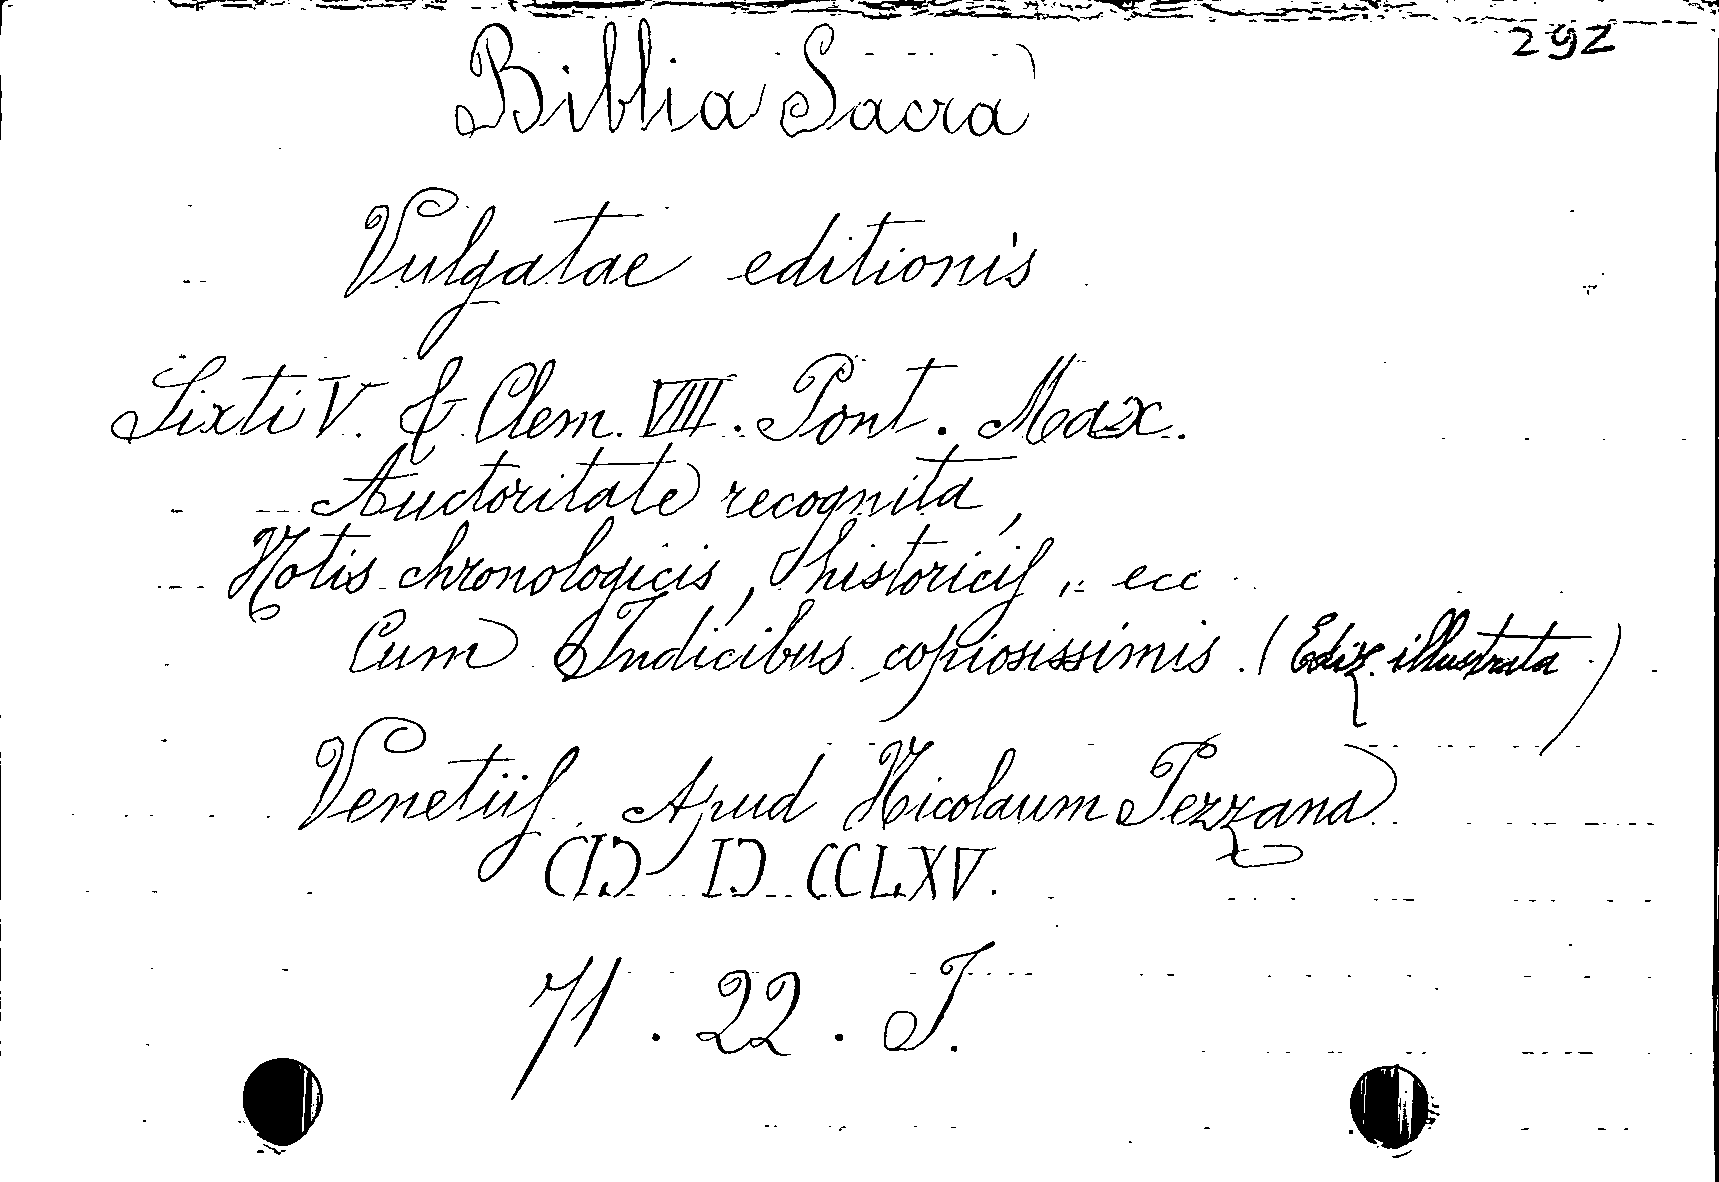 292
Biblia Sacra
Vulgatae editionis
Sixti V. & Clem. VIII. Pont. Max.
Auctoritate recognita,
Notis chronologicis, historicis, ecc
Cum Indicibus copiosissimis. (Ediz. illustrata)
Venetiis Apud Nicolaum Pezzana
CIↃ IↃ CCLXV.
71. 22. I.